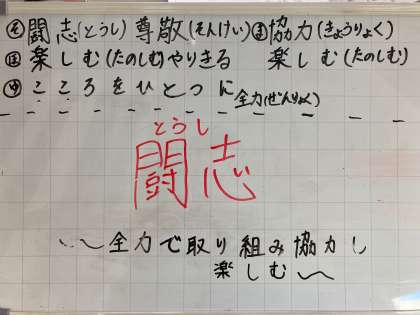 そ 闘志(とうし) 尊敬(そんけい) ま 協力(きょうりょく)
は 楽しむ(たのしむ)やりきる 楽しむ(たのしむ)
ゆ こころをひとつに 全力(ぜんりょく)
とうし
闘志
全力で取り組み協力し
楽しむ